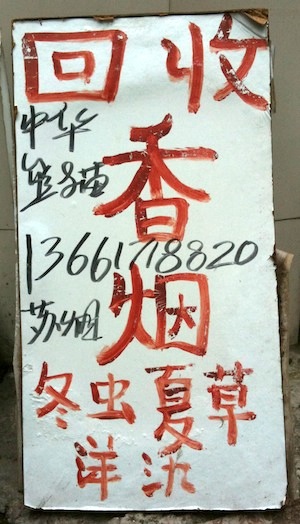 回收
中华
猫
香
13661718820
苏烟
烟
冬虫夏草
洋氿